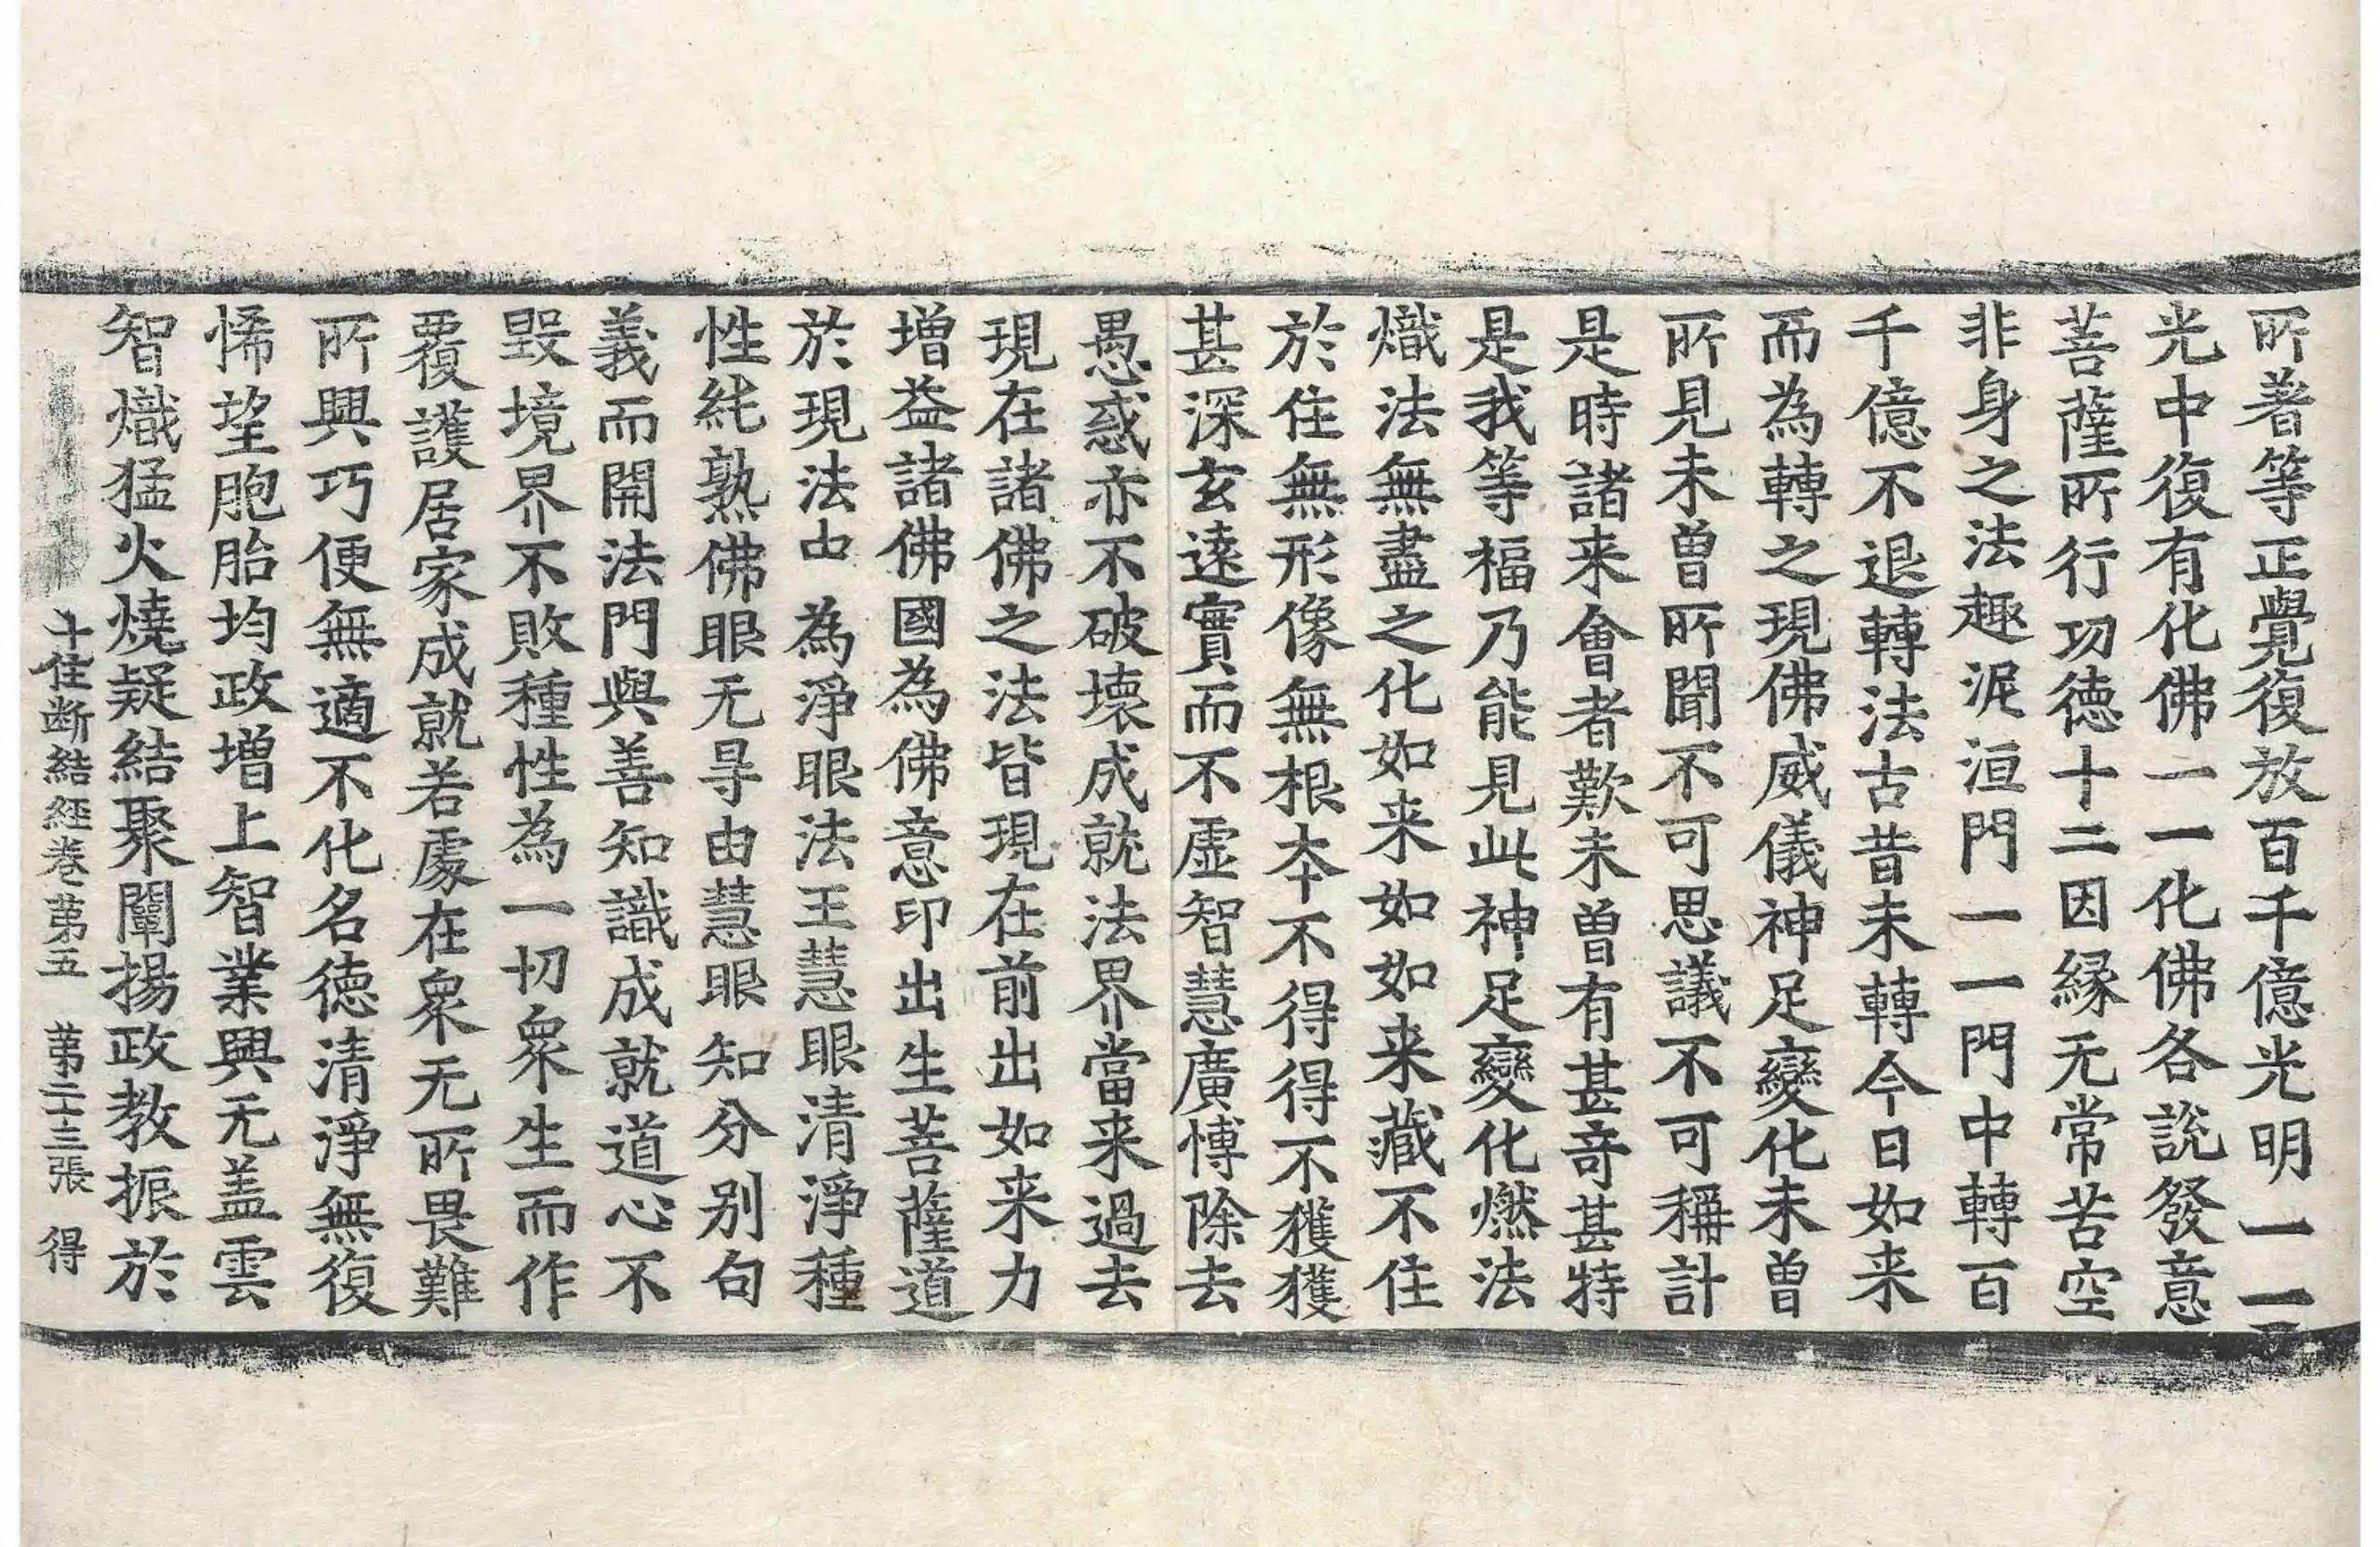 所著等正覺復放百千億光明一一
光中復有化佛一一化佛各說發意
菩薩所行功德十二因緣无常苦空
非身之法趣泥洹門一一門中轉百
千億不退轉法古昔未轉今日如来
而為轉之現佛威儀神足變化未曽
所見未曽所聞不可思議不可稱計
是時諸来會者歎未曽有甚奇甚特
是我等福乃能見此神足變化燃法
熾法無盡之化如来如如来藏不住
於住無形像無根本不得得不獲獲
甚深玄遠實而不虛智慧廣博除去
愚惑亦不破壞成就法界當来過去
現在諸佛之法皆現在前出如来力
增益諸佛國為佛意印出生菩薩道
於現法由為淨眼法王慧眼清淨種
性純熟佛眼无㝵由慧眼知分別句
義而開法門與善知識成就道心不
毀境界不敗種性為一切衆生而作
覆護居家成就若處在衆无所畏難
所興巧便無適不化名德清淨無復
悕望胞胎均政增上智業興无盖雲
智熾猛火燒疑結聚闡揚政教振於
十住断結經卷第五　第二十三張　得